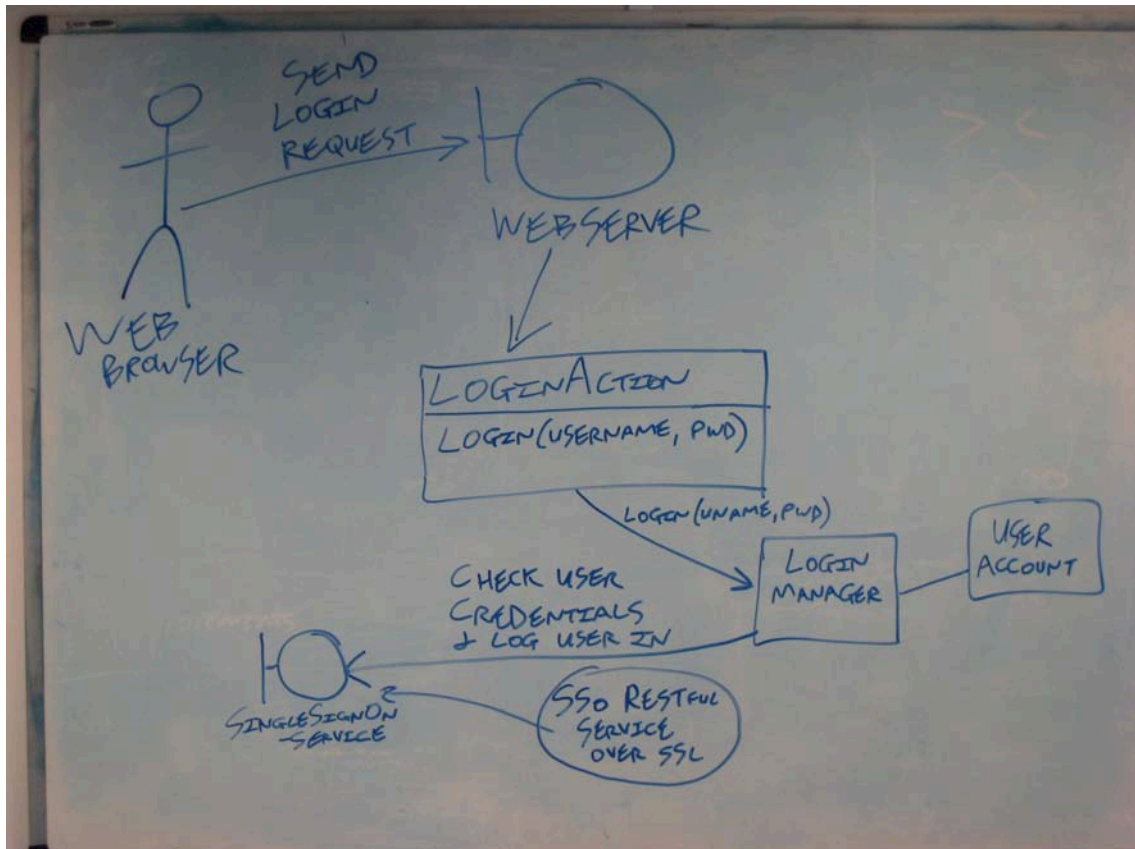 SEND
LOGIN
REQUEST
WEB
BROWSER
WEBSERVER
LOGINACTION
LOGIN(USERNAME, PWD)
LOGIN(UNAME, PWD)
LOGIN
MANAGER
USER
ACCOUNT
CHECK USER
CREDENTIALS
& LOG USER IN
SINGLESIGNON
-SERVICE
SSO RESTFUL
SERVICE
OVER SSL